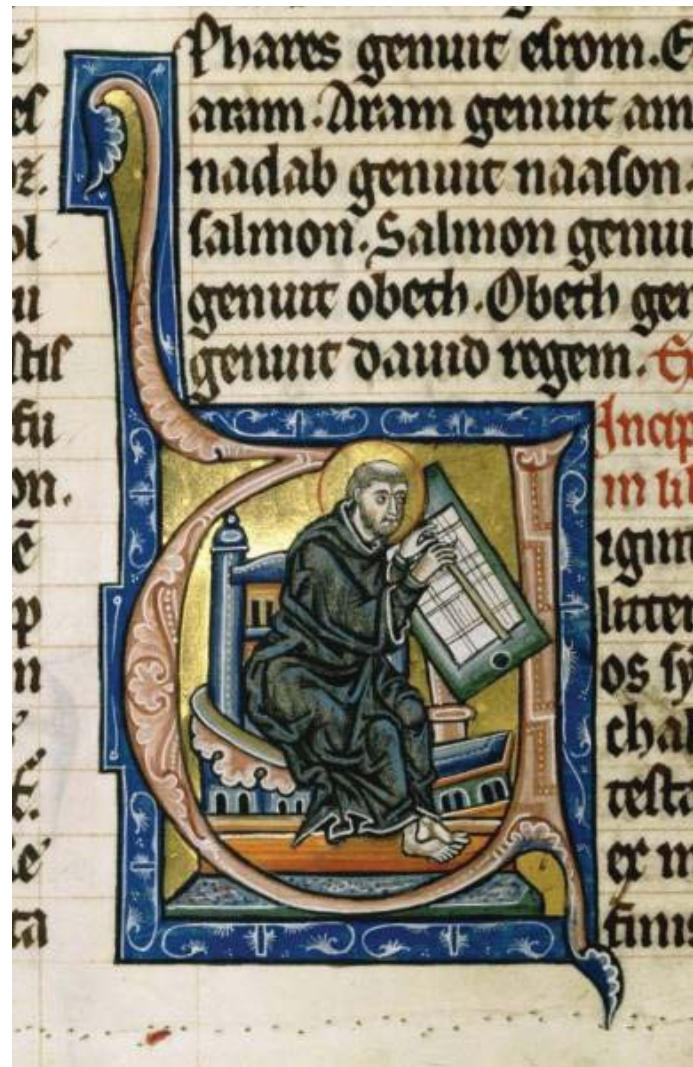 Phares genuit esrom. E
aram. Aram genuit am
nadab genuit naason.
salmon. Salmon genui
genuit obeth. Obeth gen
genuit dauid regem.
Incip
in li
igint
litter
os sy
chal
testa
ex
finis